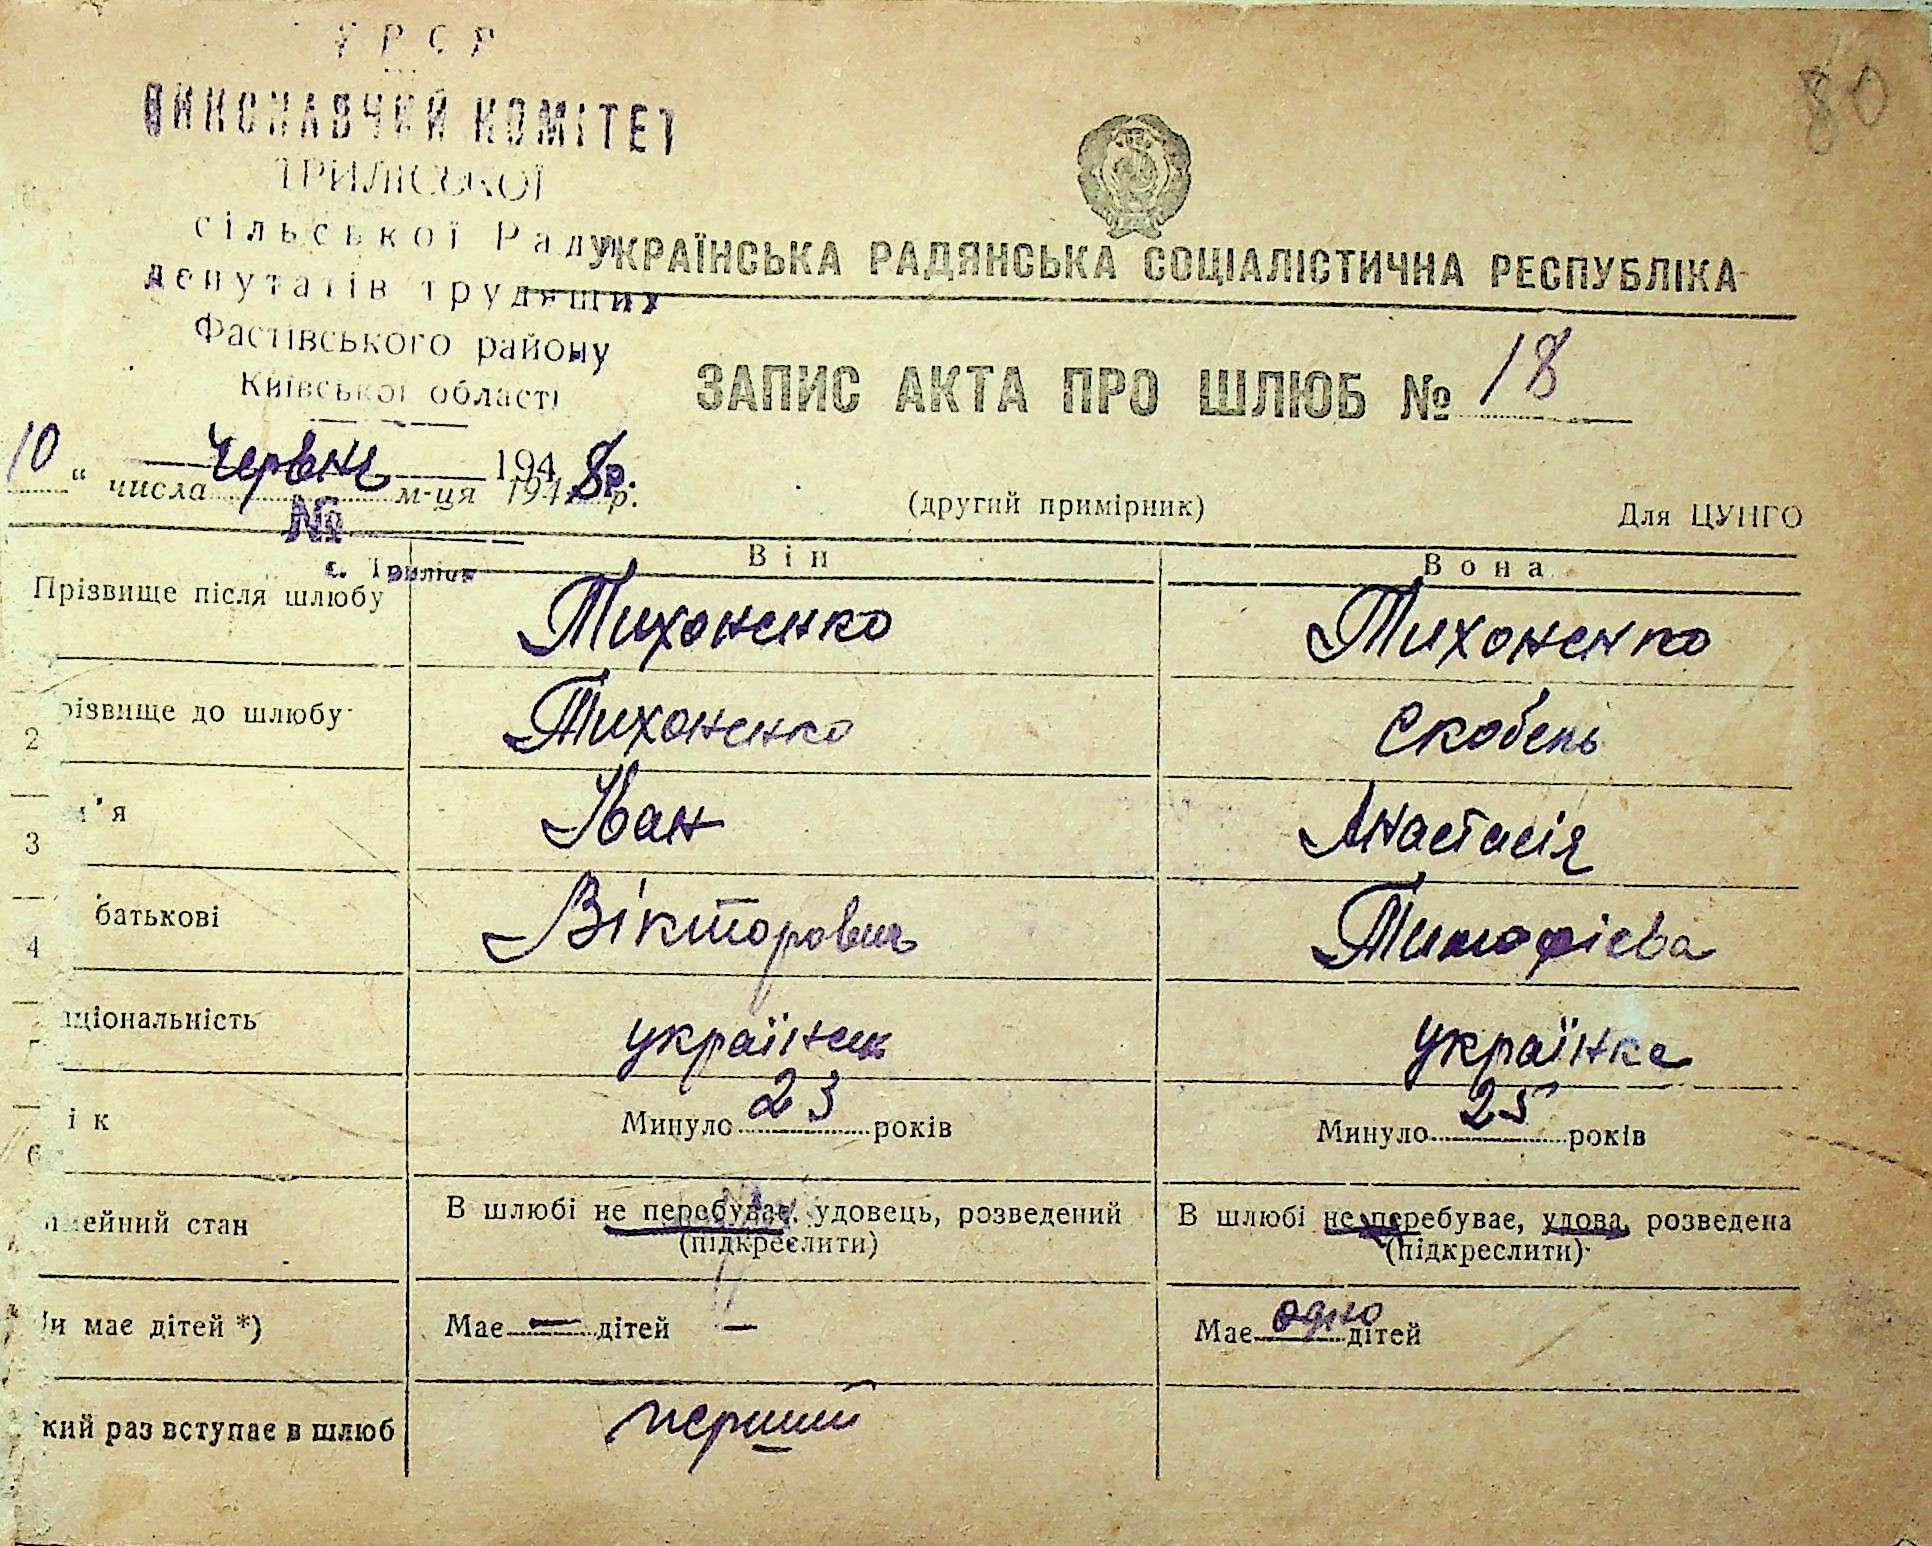 УРСР
80
ВИКОНАВЧИЙ КОМІТЕТ
ТРИЛІСЬКОЇ
сільської Ради
УКРАЇНСЬКА РАДЯНСЬКА СОЦІАЛІСТИЧНА РЕСПУБЛІКА
депутатів трудящих
Фастівського району
Київської області
ЗАПИС АКТА ПРО ШЛЮБ № 18
10 " числа червня м-ця 1948 р.
194 8р.
№
(другий примірник)
Для ЦУНГО
с. Триліси
Він
Вона
Прізвище після шлюбу Тихоненко Тихоненко
2 різвище до шлюбу Тихоненко Скобень
3 м'я Іван Анастасія
4 батькові Вікторович Тимофієва
ціональність українець українка
6 ік Минуло 23 років Минуло 25 років
імейний стан В шлюбі не перебуває, удовець, розведений В шлюбі не перебуває, удова, розведена
(підкреслити) (підкреслити)
Чи має дітей *) Має — дітей — Має одно дітей
кий раз вступає в шлюб перший